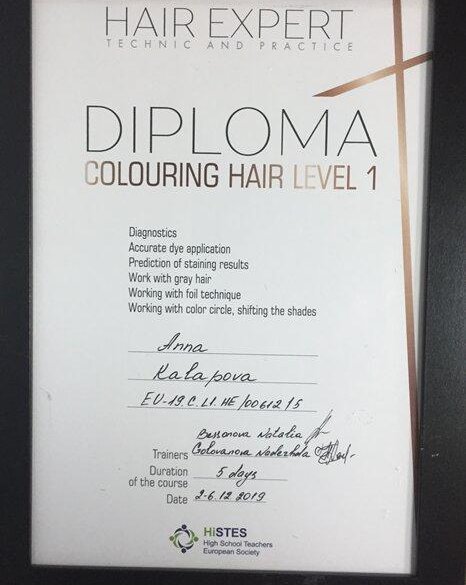 HAIR EXPERT
TECHNIC AND PRACTICE
DIPLOMA
COLOURING HAIR LEVEL 1
Diagnostics
Accurate dye application
Prediction of staining results
Work with gray hair
Working with foil technique
Working with color circle, shifting the shades
Anna
Kalapova
EU-19.C.L1.HE/00612/5
Bessonova Natalia
Trainers Golovanova Nadezhda
Duration
of the course 5 days
Date 2-6.12.2019
HiSTES
High School Teachers
European Society